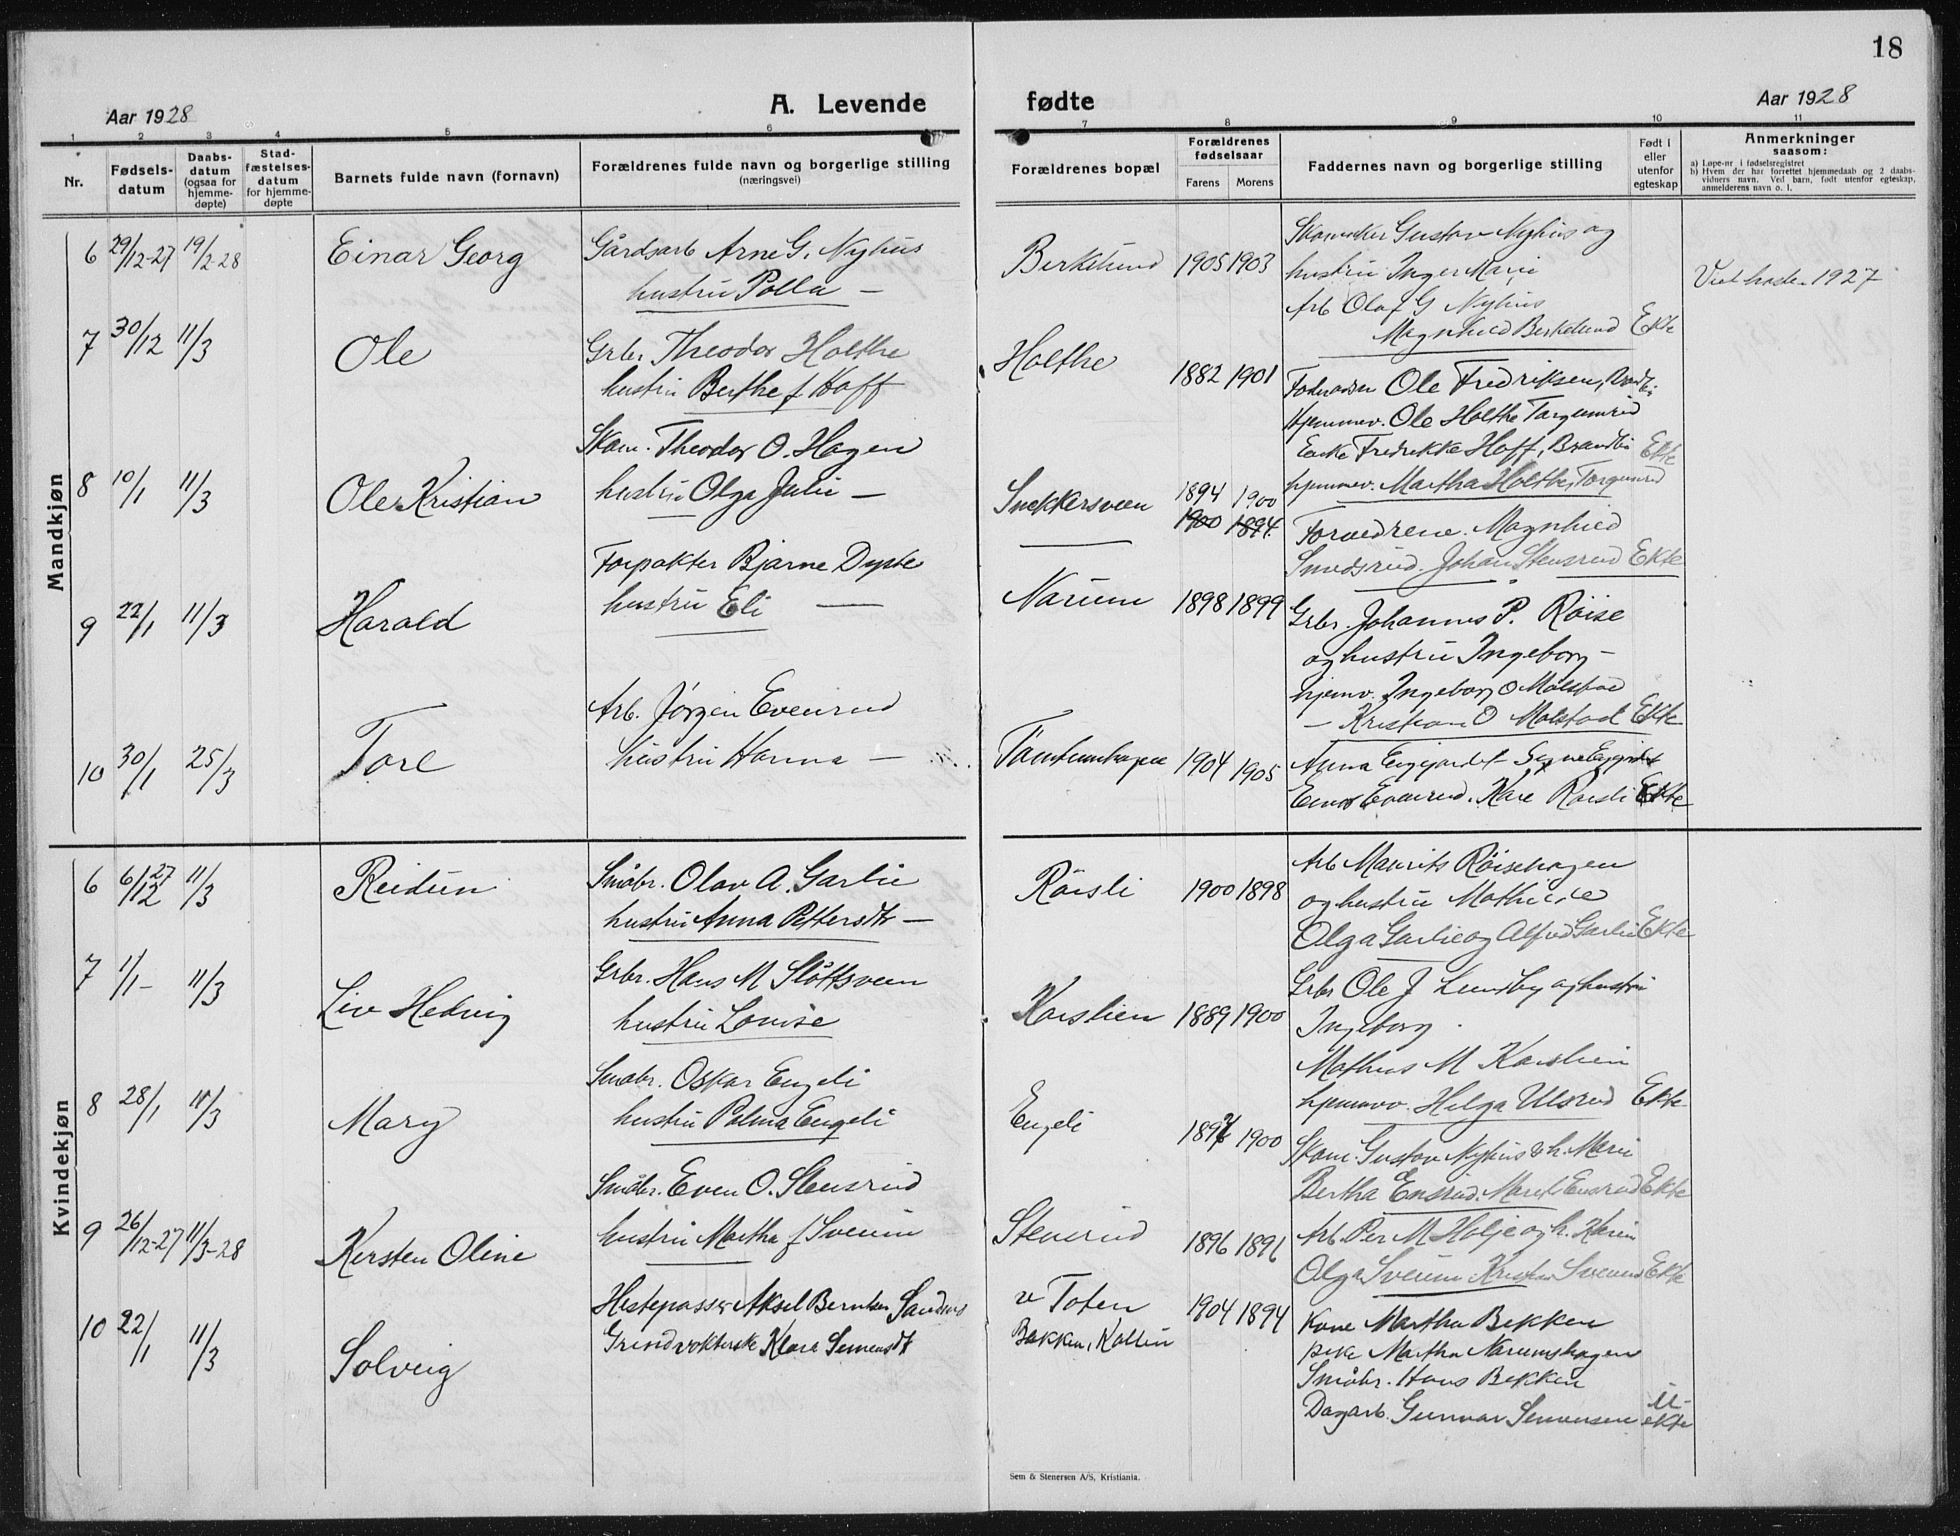 18
Aar 1928
A. Levende fødte
Aar 1928
1 2 3 4 5 6 7 8 9 10 11
Nr.
Fødsels-
datum
Daabs-
datum
(ogsaa for
hjemme-
døpte)
Stad-
fæstelses-
datum
for hjemme-
døpte
Barnets fulde navn (fornavn)
Forældrenes fulde navn og borgerlige stilling
(næringsvei)
Forældrenes bopæl
Forældrenes
fødselsaar
Farens Morens
Faddernes navn og borgerlige stilling
Født i
eller
utenfor
egteskap
Anmerkninger
saasom:
a) Løpe-nr i fødselsregistret
b) Hvem der har forrettet hjemmedaab og 2 daabs-
vidners navn. Ved barn, født utenfor egteskap,
anmelderens navn o. l.
Mandkjøn
6 29/12-27 19/2-28 Einar Georg
Gårdsarb Arne G. Nyhus
hustru Polla —
Berkelund 1905 1903
Gustav Nyhus og
hustru Inger Marie
Arb Olaf G Nyhus
Magnhild Berkelund Ekte
1927
7 30/12 11/3 Ole
Grbr. Theodor Holthe
hustru Berthe f Hoff
Holthe 1882 1901
Ole Fredriksen,
Hjemmev. Ole Holthe
Enke Fredrikke Hoff, Brandbu Ekte
hjemmev. Martha Holthe,
8 10/1 11/3 Ole Kristian
Skom. Theodor O. Hagen
hustru Olga Julie —
Snekkersveen 1894 1900
1900 1894
Forældrene. Magnhild
Smedsrud. Johan Stensrud Ekte
9 22/1 11/3 Harald
Forpakter Bjarne Dyste
hustru Eli —
Narum 1898 1899
Grbr. Johannes P. Røise
og hustru Ingeborg —
hjemv. Ingeborg O Mølstad
— Kristian O Mølstad Ekte
10 30/1 25/3 Tore
Arb. Jørgen Evenrud
hustru Hanna —
1904 1905
Anna Engjordet Signe
Evenrud. Kåre Røisli Ekte
Kvindekjøn
6 6/12 27 11/3 Reidun
Småbr. Olav A. Garlie
hustru Anna Pettersdtr —
Røisli 1900 1898
Arb Mauritz Røisehagen
og hustru Mathilde
Olga Garlie og Alfred Garlie Ekte
7 1/1 — 11/3 Liv Hedvig
Grbr. Hans M Slåttsveen
hustru Lovise
Korslien 1889 1900
Grbr Ole J Lundby og hustru
Ingeborg.
Mathus M Korslien
hjemmev. Helga Ulsrud Ekte
8 28/1 11/3 Mary
Småbr. Oskar Engeli
hustru Palma Engeli
Engeli 1900
Skom. Gustav Nyhus & h. Marie
Bertha Ensrud. Ensrud Ekte
9 26/12-27 11/3-28 Kersten Oline
Småbr. Even O. Stensrud
hustru Martha f Sveum
Stensrud 1896 1896
Arb. Per M Holje og h. Karen
Olga Sveum Sveum Ekte
10 22/1 11/3 Solveig
Hestepasser Aksel Berntsen
Klara Simensdt
v Toten
Bakken, Kolbu 1904 1894
Kone Martha Bekken
pike Martha Narumshagen
Småbr. Hans Bekken
Dagarb. Gunnar Simensen U-
ekte
Sem & Stenersen A/S, Kristiania.